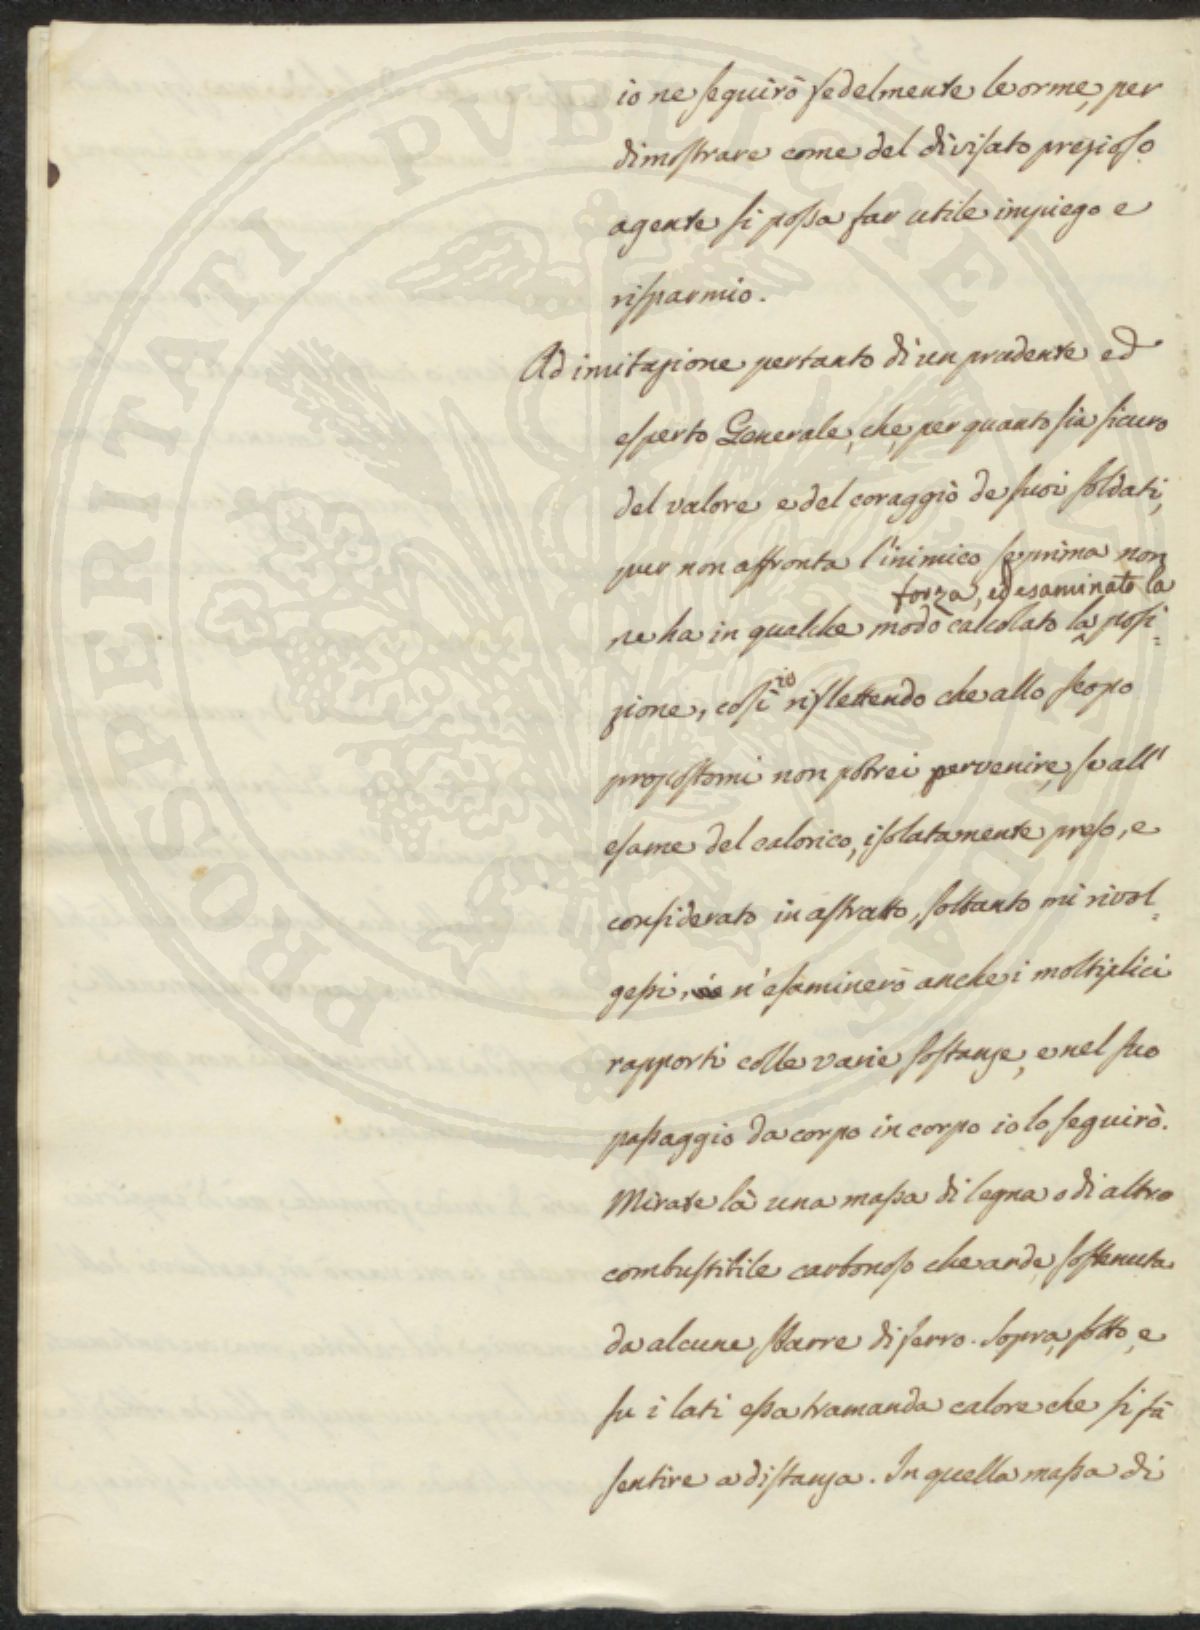 io ne seguirò fedelmente le orme, per
dimostrare come del divisato prezioso
agente si possa far utile impiego e
risparmio.
Ad imitazione pertanto di un prudente ed
esperto Generale, che, per quanto sia sicuro
del valore e del coraggio de suoi soldati,
pur non affronta l'inimico, se prima non
forza, ed esaminato la
ne ha in qualche modo calcolato la posi=
zione, così io riflettendo che allo scopo
propostomi non potrei pervenire, se all'
esame del calorico, isolatamente preso, e
considerato in astratto, soltanto mi rivol=
gessi, n'esaminerò anche i moltiplici
rapporti colle varie sostanze, e nel suo
passaggio da corpo in corpo io lo seguirò.
Mirate là una massa di legna o di altro
combustibile carbonoso che arde, sostenuta
da alcune sbarre di ferro. Sopra, sotto, e
su i lati essa tramanda calore che si fà
sentire a distanza. In quella massa di
PROSPERITATI PUBLICAE AUGENDAE